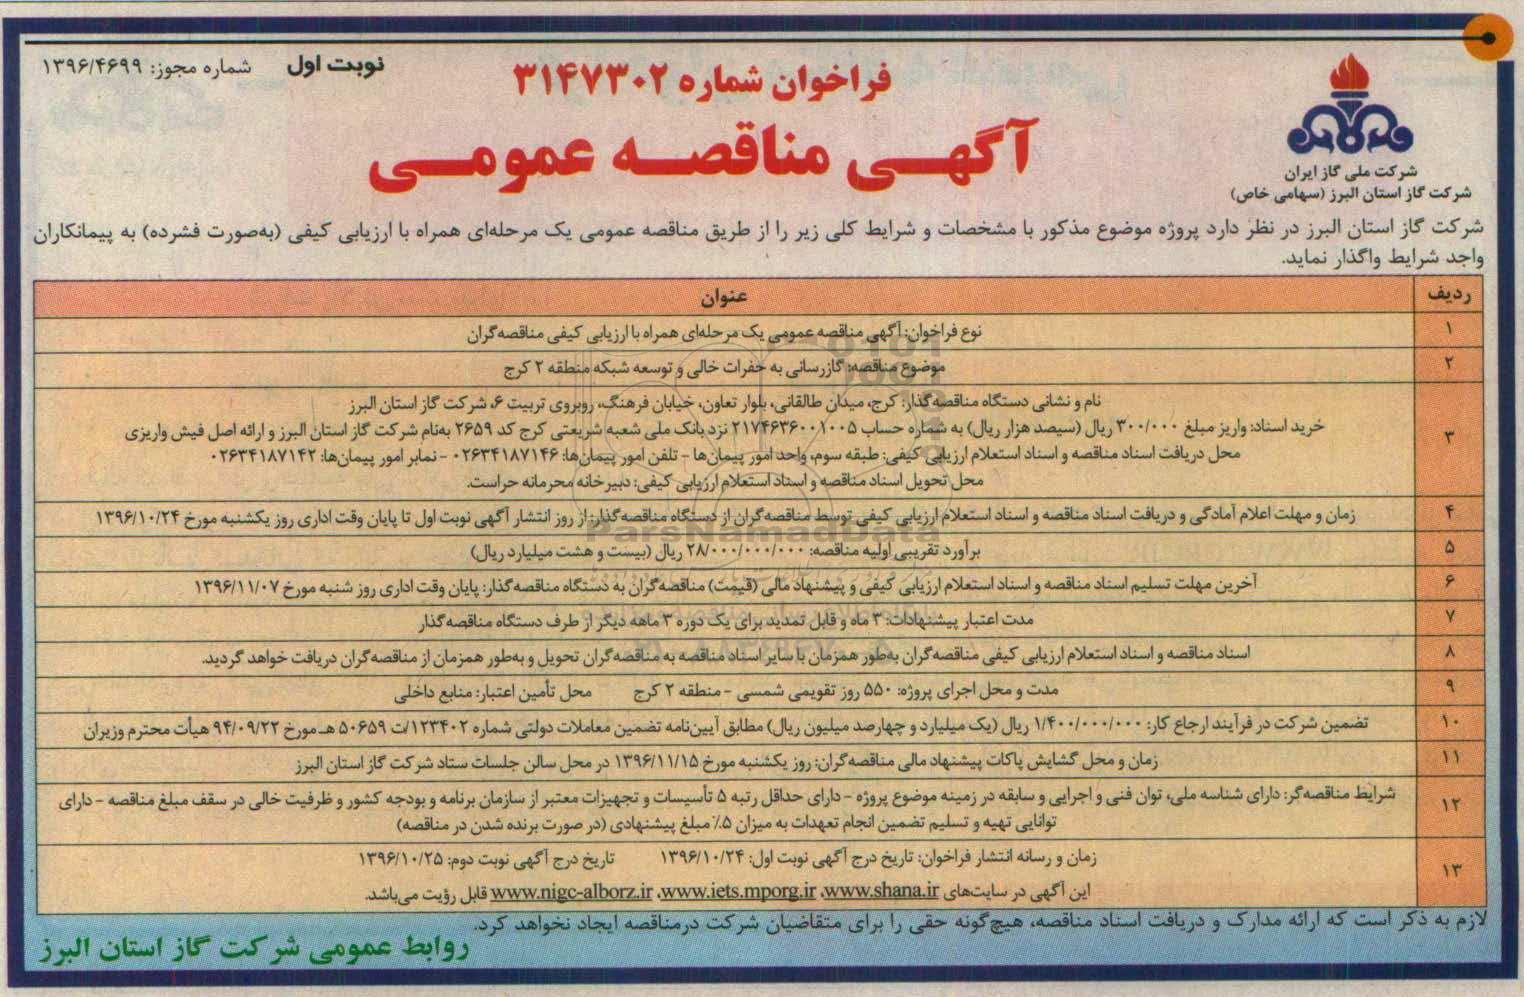 شماره مجوز: ۱۳۹۶/۴۶۹۹
نوبت اول
فراخوان شماره ۳۱۴۷۳۰۲
آگهی مناقصه عمومی
شرکت ملی گاز ایران
شرکت گاز استان البرز (سهامی خاص)
شرکت گاز استان البرز در نظر دارد پروژه موضوع مذکور با مشخصات و شرایط کلی زیر را از طریق مناقصه عمومی یک مرحله‌ای همراه با ارزیابی کیفی (به‌صورت فشرده) به پیمانکاران
واجد شرایط واگذار نماید.
ردیف عنوان
۱ نوع فراخوان: آگهی مناقصه عمومی یک مرحله‌ای همراه با ارزیابی کیفی مناقصه‌گران
۲ موضوع مناقصه: گازرسانی به حفرات خالی و توسعه شبکه منطقه ۲ کرج
۳ نام و نشانی دستگاه مناقصه‌گذار: کرج، میدان طالقانی، بلوار تعاون، خیابان فرهنگ، روبروی تربیت ۶، شرکت گاز استان البرز
خرید اسناد: واریز مبلغ ۳۰۰/۰۰۰ ریال (سیصد هزار ریال) به شماره حساب ۲۱۷۴۶۳۶۰۰۱۰۰۵ نزد بانک ملی شعبه شریعتی کرج کد ۲۶۵۹ به‌نام شرکت گاز استان البرز و ارائه اصل فیش واریزی
محل دریافت اسناد مناقصه و اسناد استعلام ارزیابی کیفی: طبقه سوم، واحد امور پیمان‌ها - تلفن امور پیمان‌ها: ۰۲۶۳۴۱۸۷۱۴۶ - نمابر امور پیمان‌ها: ۰۲۶۳۴۱۸۷۱۴۲
محل تحویل اسناد مناقصه و اسناد استعلام ارزیابی کیفی: دبیرخانه محرمانه حراست.
۴ زمان و مهلت اعلام آمادگی و دریافت اسناد مناقصه و اسناد استعلام ارزیابی کیفی توسط مناقصه‌گران از دستگاه مناقصه‌گذار: از روز انتشار آگهی نوبت اول تا پایان وقت اداری روز یکشنبه مورخ ۱۳۹۶/۱۰/۲۴
۵ برآورد تقریبی اولیه مناقصه: ۲۸/۰۰۰/۰۰۰/۰۰۰ ریال (بیست و هشت میلیارد ریال)
۶ آخرین مهلت تسلیم اسناد مناقصه و اسناد استعلام ارزیابی کیفی و پیشنهاد مالی (قیمت) مناقصه‌گران به دستگاه مناقصه‌گذار: پایان وقت اداری روز شنبه مورخ ۱۳۹۶/۱۱/۰۷
۷ مدت اعتبار پیشنهادات: ۳ ماه و قابل تمدید برای یک دوره ۳ ماهه دیگر از طرف دستگاه مناقصه‌گذار
۸ اسناد مناقصه و اسناد استعلام ارزیابی کیفی مناقصه‌گران به‌طور همزمان با سایر اسناد مناقصه به مناقصه‌گران تحویل و به‌طور همزمان از مناقصه‌گران دریافت خواهد گردید.
۹ مدت و محل اجرای پروژه: ۵۵۰ روز تقویمی شمسی - منطقه ۲ کرج محل تأمین اعتبار: منابع داخلی
۱۰ تضمین شرکت در فرآیند ارجاع کار: ۱/۴۰۰/۰۰۰/۰۰۰ ریال (یک میلیارد و چهارصد میلیون ریال) مطابق آیین‌نامه تضمین معاملات دولتی شماره ۱۲۳۴۰۲/ت ۵۰۶۵۹ هـ مورخ ۹۴/۰۹/۲۲ هیأت محترم وزیران
۱۱ زمان و محل گشایش پاکات پیشنهاد مالی مناقصه‌گران: روز یکشنبه مورخ ۱۳۹۶/۱۱/۱۵ در محل سالن جلسات ستاد شرکت گاز استان البرز
۱۲ شرایط مناقصه‌گر: دارای شناسه ملی، توان فنی و اجرایی و سابقه در زمینه موضوع پروژه - دارای حداقل رتبه ۵ تأسیسات و تجهیزات معتبر از سازمان برنامه و بودجه کشور و ظرفیت خالی در سقف مبلغ مناقصه - دارای
توانایی تهیه و تسلیم تضمین انجام تعهدات به میزان ۵٪ مبلغ پیشنهادی (در صورت برنده شدن در مناقصه)
۱۳ زمان و رسانه انتشار فراخوان: تاریخ درج آگهی نوبت اول: ۱۳۹۶/۱۰/۲۴ تاریخ درج آگهی نوبت دوم: ۱۳۹۶/۱۰/۲۵
این آگهی در سایت‌های www.shana.ir، www.iets.mporg.ir، www.nigc-alborz.ir قابل رؤیت می‌باشد.
لازم به ذکر است که ارائه مدارک و دریافت اسناد مناقصه، هیچ‌گونه حقی را برای متقاضیان شرکت در مناقصه ایجاد نخواهد کرد.
روابط عمومی شرکت گاز استان البرز
ParsNamadData